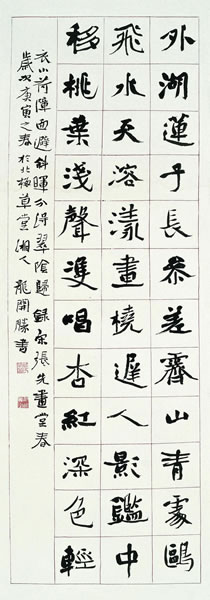 外湖蓮子長參差霽山青處鷗
飛水天溶漾畫橈遲人影鑑中
移桃葉淺聲雙唱杏紅深色輕
衣小荷障面避斜暉分得翠陰歸錄宋張先畫堂春
歲次庚寅之春於北極草堂湘人龍開勝書